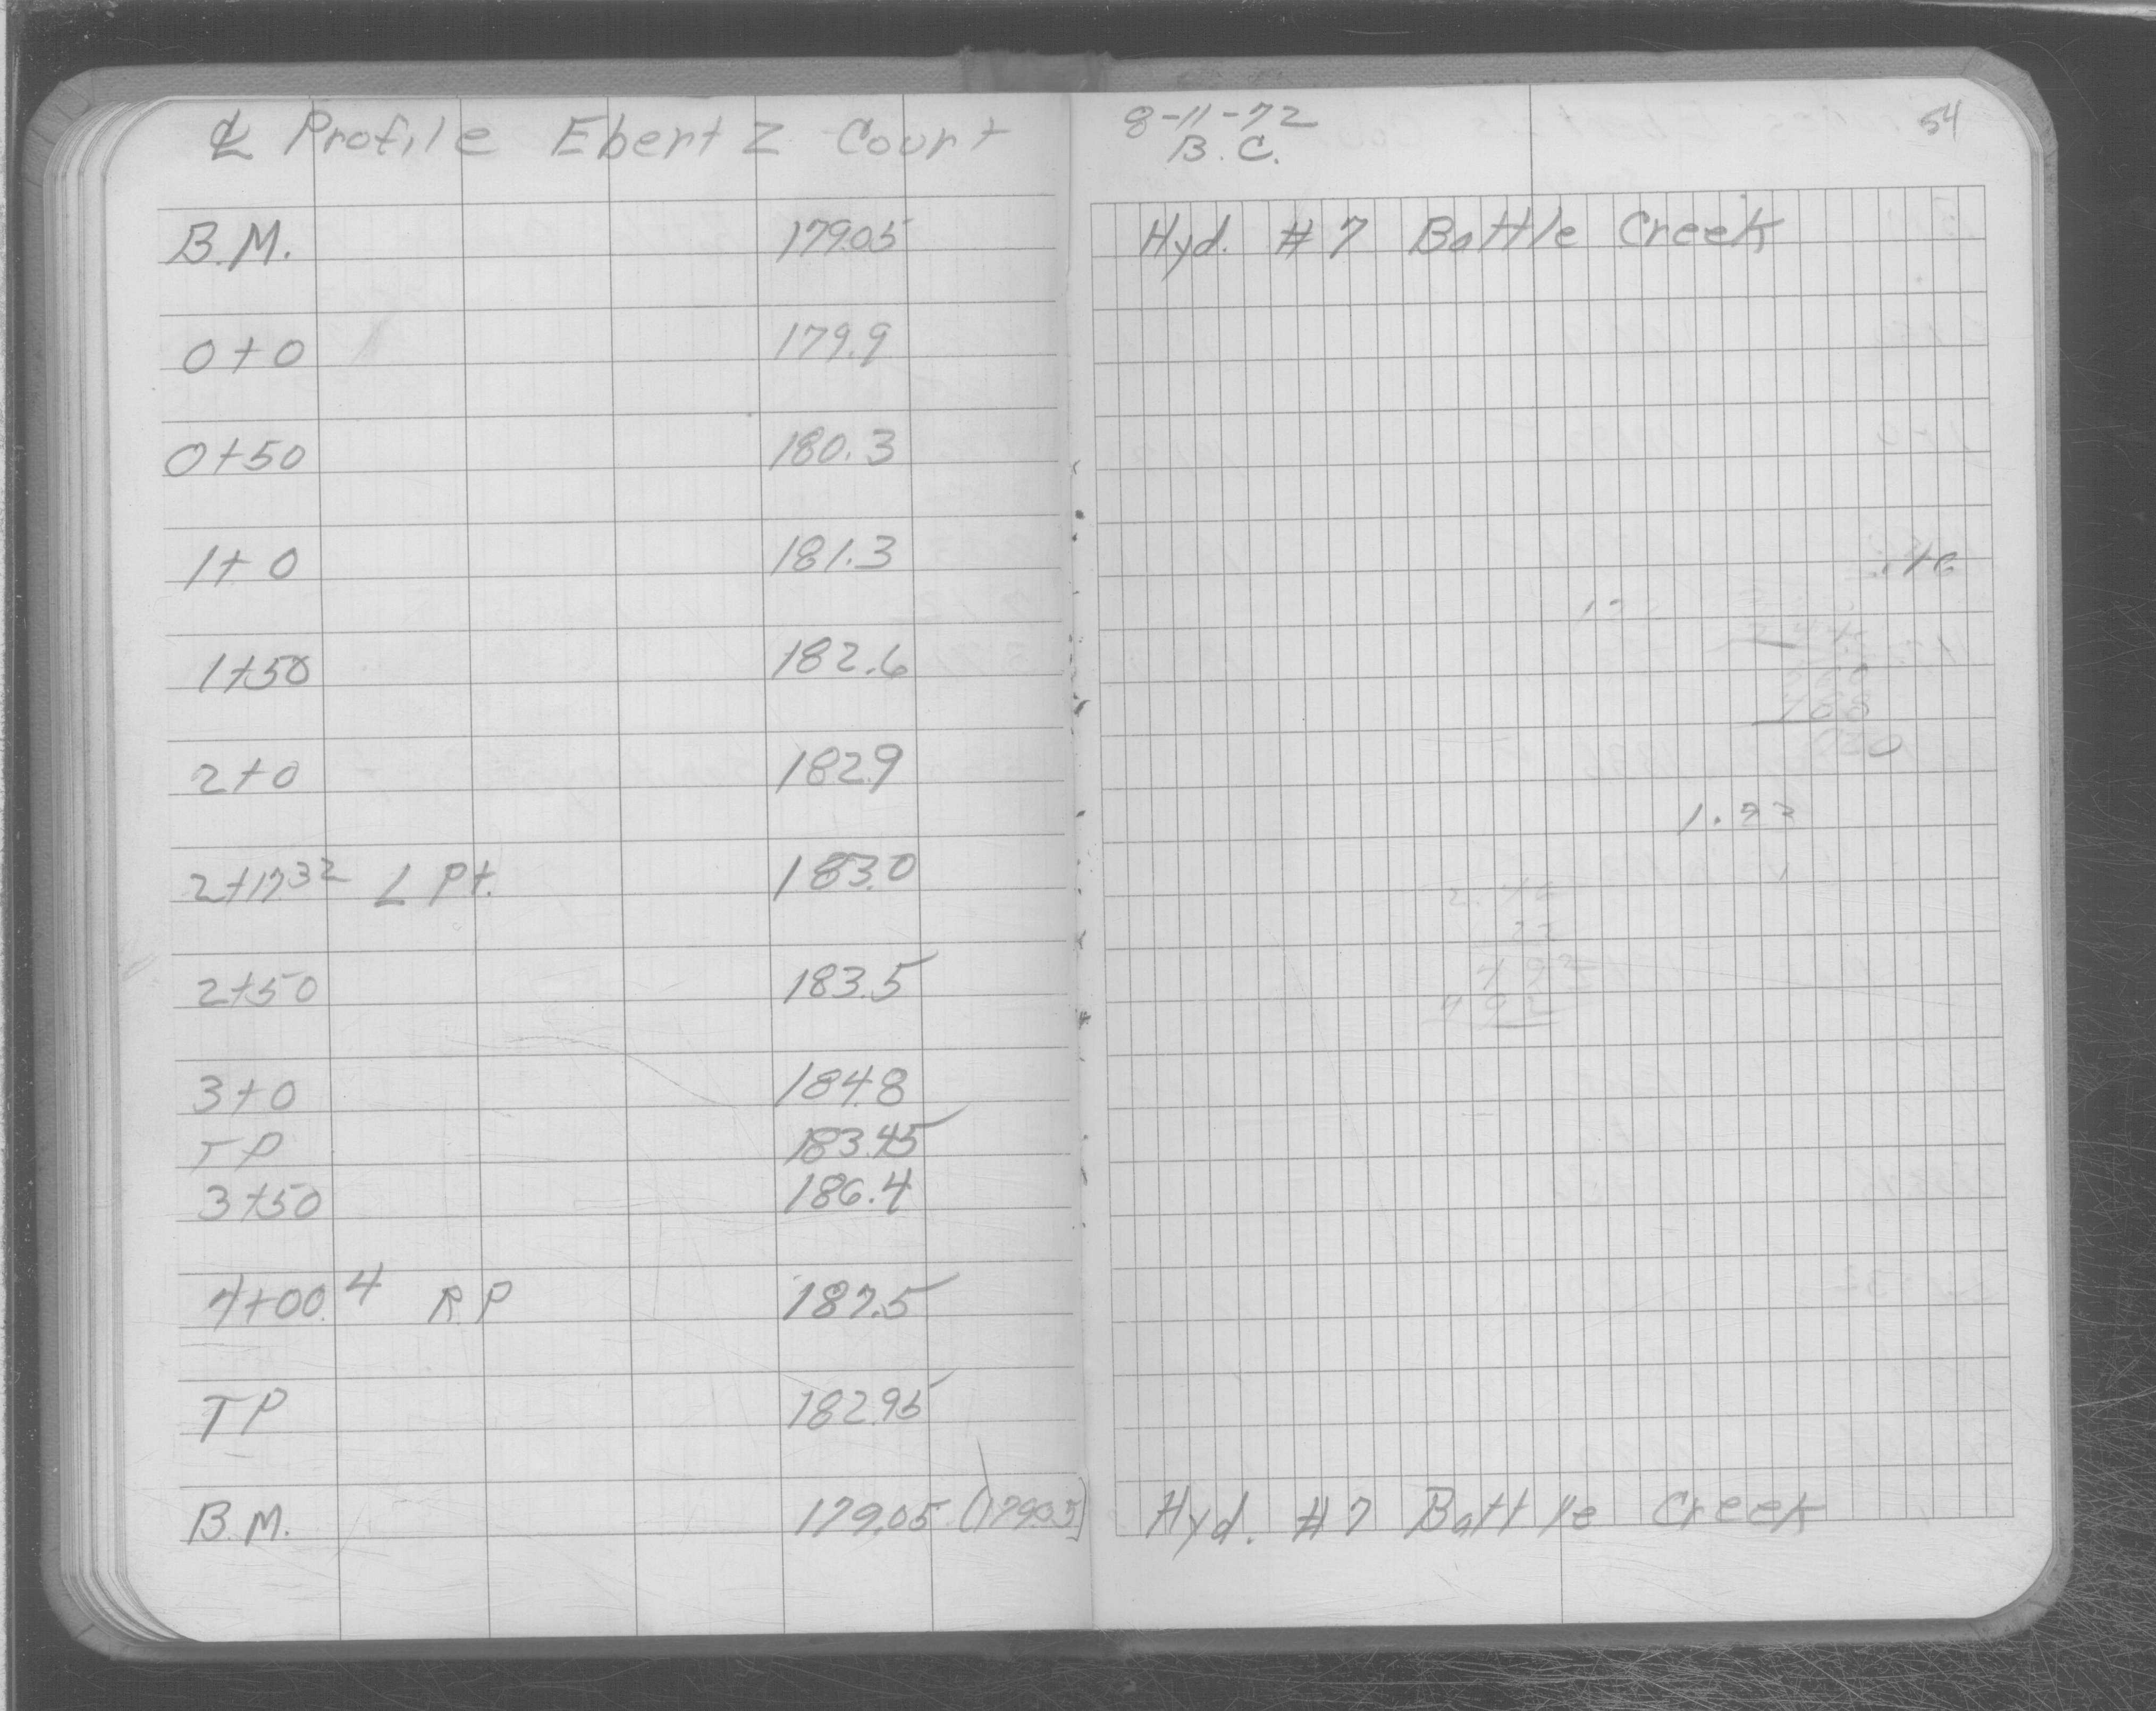 ℄ Profile Ebertz Court
B.M. 179.05
0+0 179.9
0+50 180.3
1+0 181.3
1+50 182.6
2+0 182.9
2+17.32 L Pt. 183.0
2+50 183.5
3+0 184.8
TP 183.45
3+50 186.4
4+00.4 RP 187.5
TP 182.95
B.M. 179.05 (179.05)
8-11-72 54
B.C.
Hyd. #7 Battle Creek
Hyd. #7 Battle Creek